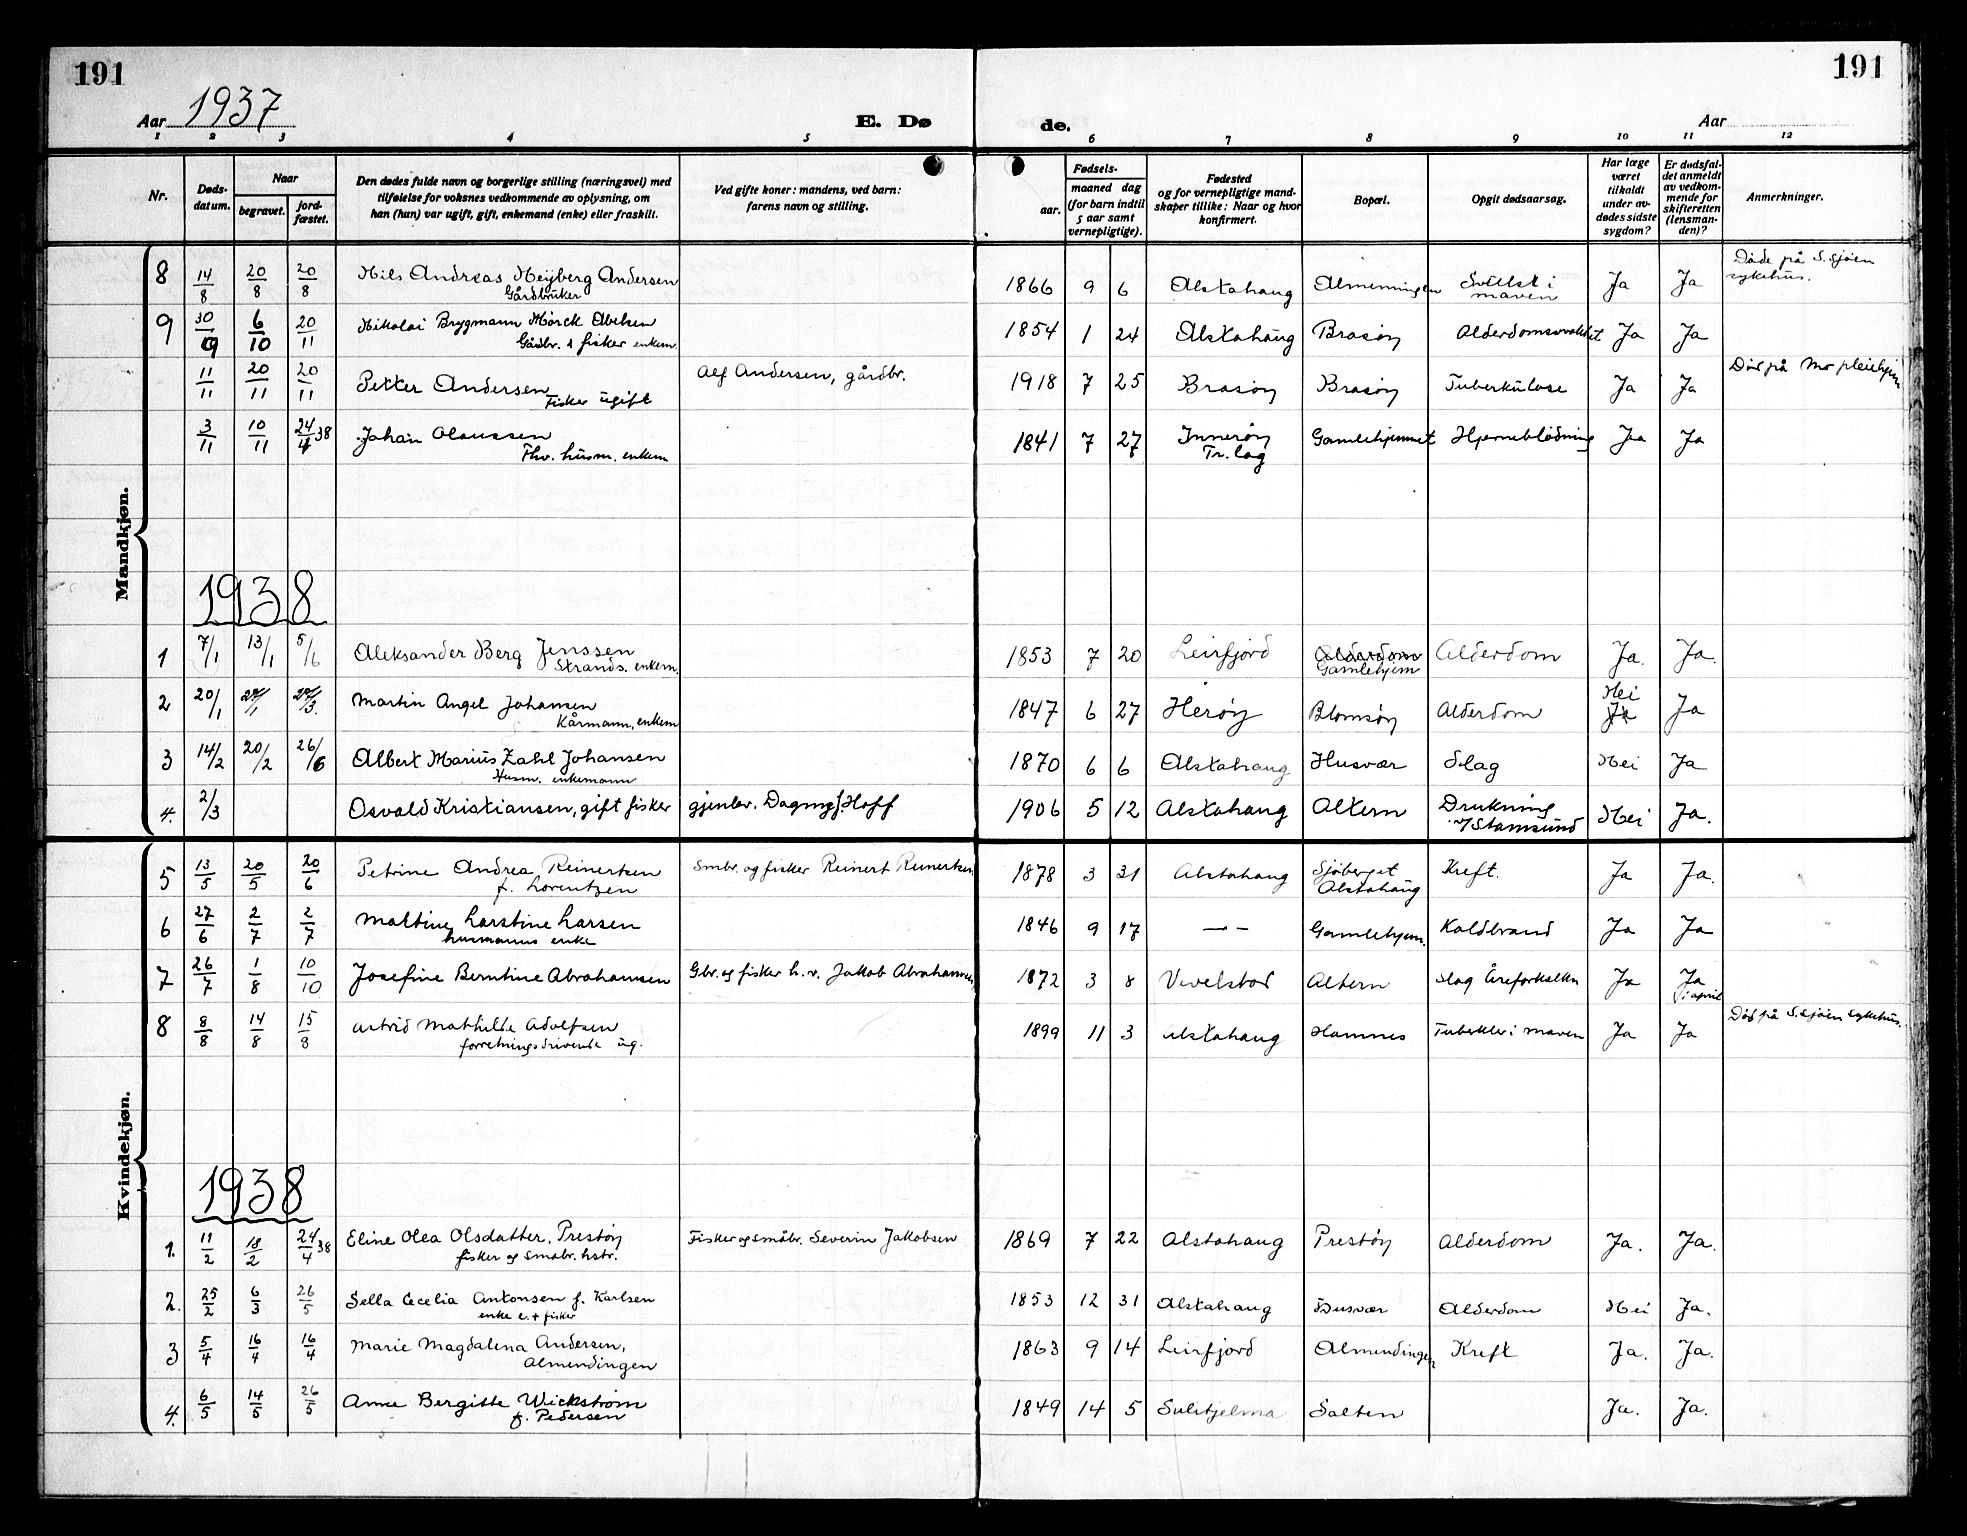 191
191
Aar 1937
E. Dø
de.
Aar
1 2 3 4 5 6 7 8 9 10 11 12
Nr.
Døds-
datum.
Naar
begravet.
jord-
fæstet.
Den dødes fulde navn og borgerlige stilling (næringsvei) med
tilføielse for voksnes vedkommende av oplysning, om
han (hun) var ugift, gift, enkemand (enke) eller fraskilt.
Ved gifte koner: mandens, ved barn:
farens navn og stilling.
Fødsels-
aar.
maaned dag
(for barn indtil
5 aar samt
vernepligtige).
Fødested
og for vernepligtige mand-
skaper tillike: Naar og hvor
konfirmert.
Bopæl.
Opgit dødsaarsag.
Har læge
været
tilkaldt
under av-
dødes sidste
sygdom?
Er dødsfal-
det anmeldt
av vedkom-
mende for
skifteretten
(lensman-
den)?
Anmerkninger.
Mandkjøn.
8 14/8 20/8 20/8 Nils Andreas Meyberg Andersen 1866 9 6 Alstahaug Almenningen Svulst i Ja Ja Døde på S.sjøen
Gårdbruker maven sykehus.
9 30/9 6/10 20/11 Nikolai Brygmann Mörck Abelsen 1854 1 24 Alstahaug Brasöy Alderdomssvakhet Ja Ja
Gårdbr. & fisker enkem.
11/11 20/11 20/11 Petter Andersen Alf Andersen, gårdbr. 1918 7 25 Brasöy Brasöy Tuberkulose Ja Ja Död på Mo pleiehjem
Fisker ugift
3/11 10/11 24/4 38 Johan Olaussen 1841 7 27 Inneröy Gamlehjemmet Hjerneblödning Ja Ja
Fhv. husm. enkem Tr. lag
1938
1 7/1 13/1 5/6 Aleksander Berg Jenssen 1853 7 20 Leirfjord Alderdom Alderdom Ja. Ja.
Strands. enkem. Gamlehjem
2 20/1 27/1 27/3. Martin Angel Johansen 1847 6 27 Heröy Blomsöy Alderdom Nei Ja Ja
Kårmann, enkem
3 14/2 20/2 26/6 Albert Marius Zahl Johansen 1870 6 6 Alstahaug Husvær Slag Nei Ja
Husm. enkemann
4. 2/3 Osvald Kristiansen, gift fisker gjenlev. Dagny f. Hoff 1906 5 12 Alstahaug Altern Drukning Nei Ja.
v/Stamsund
Kvindekjøn.
5 13/5 20/5 20/6 Petrine Andrea Reinertsen Smbr. og fisker Reinert Reinertsen 1878 3 31 Alstahaug Sjöberget Kreft. Ja Ja.
f. Lorentzen Alstahaug
6 27/6 2/7 2/7 Maltine Larstine Larsen 1846 9 17 — – Gamlehjem. Koldbrand Ja Ja
husmanns enke
7 26/7 1/8 10/10 Josefine Berntine Abrahamsen Gbr. og fisker h.v. Jakob Abrahamsen 1872 3 8 Vevelstad Altern Slag Åreforkalkn Ja Ja
i april
8 8/8 14/8 15/8 Astrid Mathilde Adolfsen 1899 11 3 Alstahaug Hamnes Tuberkler i maven Ja Ja Död på S.sjöen sykehus.
forretningsdrivende ug.
1938
1. 11/2 18/2 24/4 38 Eline Olea Olsdatter, Prestöy Fisker og småbr. Severin Jakobsen 1869 7 22 Alstahaug Prestöy Alderdom Ja. Ja.
fisker og småbr. hstr.
2. 25/2 6/3 26/5 Sella Cecelia Antonsen f. Karlsen 1853 12 31 Alstahaug Husvær Alderdom Nei Ja.
enke e. + fisker
3 5/4 16/4 16/4 Marie Magdalena Andersen, 1863 9 14 Leirfjord Almendingen Kreft Ja. Ja.
Almendingen
4. 6/5 14/5 26/5 Anne Bergitte Wickström 1849 14 5 Sulitjelma Salten Ja. Ja.
f. Pedersen